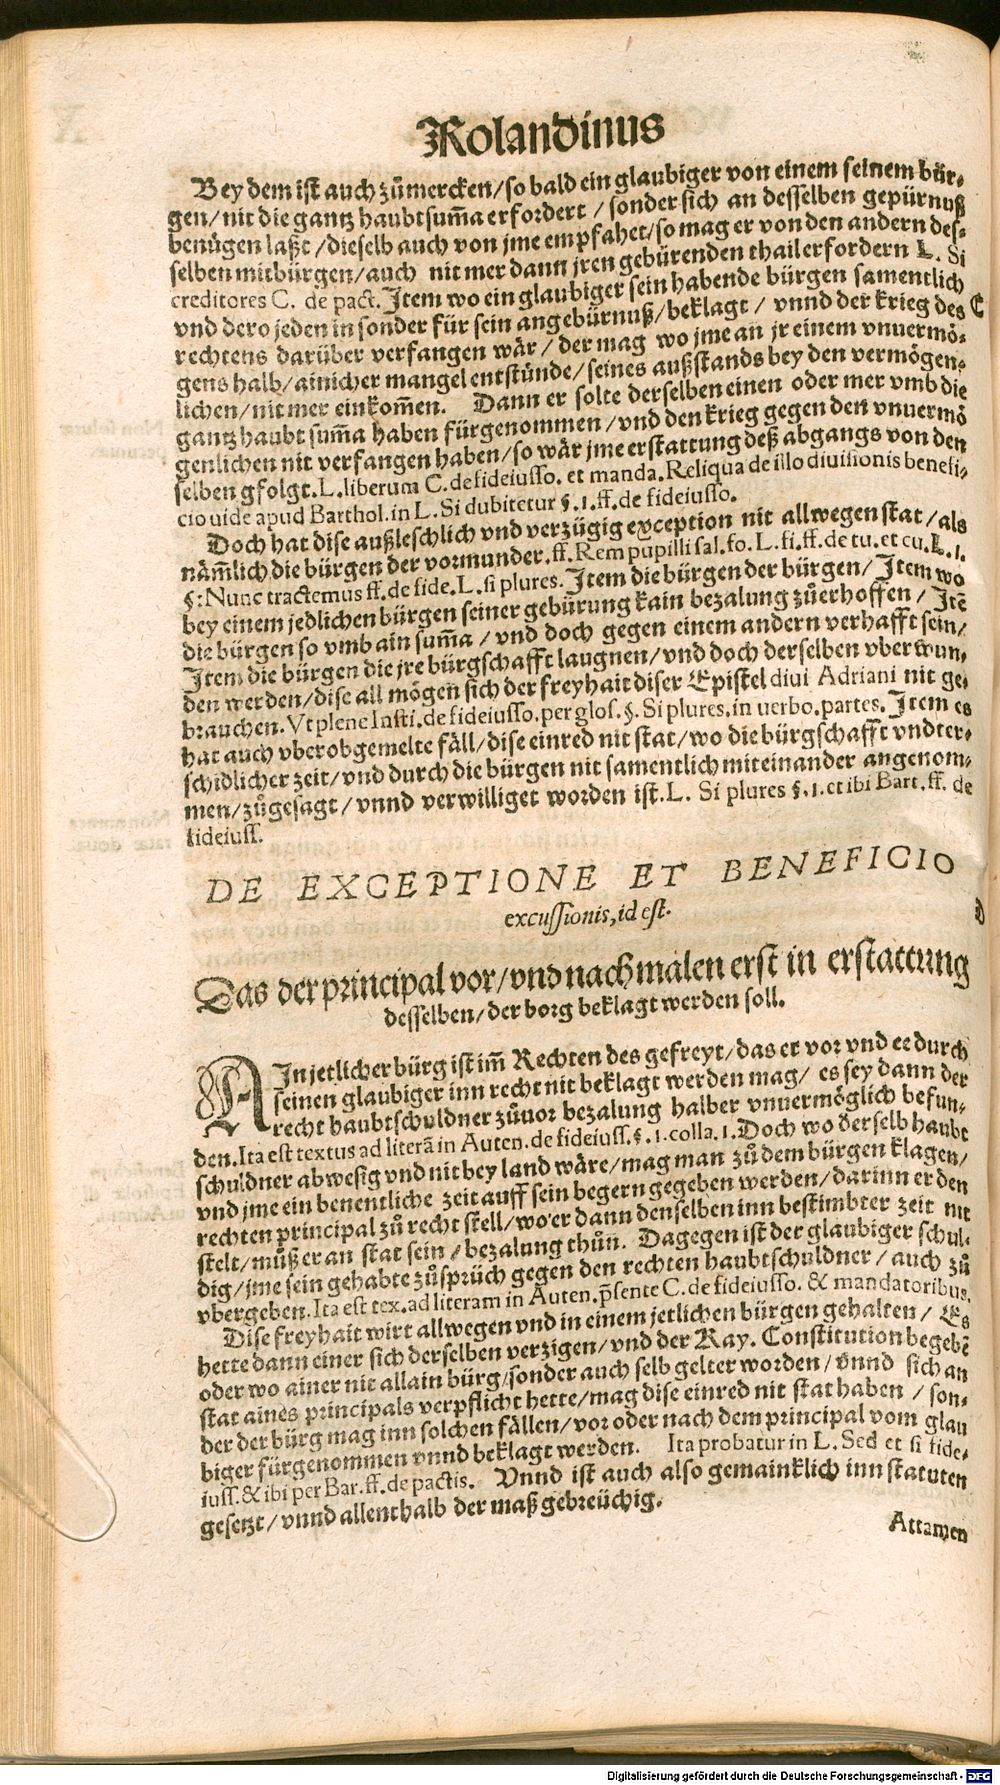 Rolandinus
Bey dem ist auch zůmercken/so bald ein glaubiger von einem seinem bür-
gen/nit die gantz haubtsum̃a erfordert/sonder sich an desselben gepürnuß
benügen laßt/dieselb auch von jme empfahet/so mag er von den andern des-
selben mitbürgen/auch nit mer dann jren gebürenden thail erfordern L. Si
creditores C. de pact. Item wo ein glaubiger sein habende bürgen samentlich
C
vnd dero jeden in sonder für sein angebürnuß/beklagt/vnnd der krieg des
rechtens darüber verfangen wär/der mag wo jme an jr einem vnuermö-
gens halb/ainicher mangel entstünde/seines außstands bey den vermögen-
lichen/nit mer einkom̃en. Dann er solte derselben einen oder mer vmb die
gantz haubt sum̃a haben fürgenommen/vnd den krieg gegen den vnuermö
genlichen nit verfangen haben/so wär jme erstattung deß abgangs von den
selben gfolgt. L. liberum C. de fideiusso. et manda. Reliqua de illo diuisionis benefi-
cio uide apud Barthol. in L. Si dubitetur §. 1. ff. de fideiusso.
Doch hat dise außleschlich vnd verzügig exception nit allwegen stat/als
näm̃lich die bürgen der vormunder. ff. Rem pupilli sal. fo. L. fi. ff. de tu. et cu. L. 1.
§: Nunc tractemus ff. de fide. L. si plures. Item die bürgen der bürgen/Item wo
bey einem jedlichen bürgen seiner gebürung kain bezalung zůerhoffen/Itē
die bürgen so vmb ain sum̃a/vnd doch gegen einem andern verhafft sein/
Item die bürgen die jre bürgschafft laugnen/vnd doch derselben vberwun-
den werden/dise all mögen sich der freyhait diser Epistel diui Adriani nit ge-
brauchen. Vt plene Insti. de fideiusso. per glos. §. Si plures. in uerbo. partes. Item es
hat auch vber obgemelte fäll/dise einred nit stat/wo die bürgschafft vndter-
schidlicher zeit/vnd durch die bürgen nit samentlich miteinander angenom-
men/zůgesagt/vnnd verwilliget worden ist. L. Si plures §. 1. et ibi Bart. ff. de
fideiuss.
DE EXCEPTIONE ET BENEFICIO
excussionis, id est.
D
Das der principal vor/vnd nachmalen erst in erstattung
desselben/der borg beklagt werden soll.
AIn jetlicher bürg ist im̃ Rechten des gefreyt/das er vor vnd ee durch
seinen glaubiger inn recht nit beklagt werden mag/es sey dann der
recht haubtschuldner zůuor bezalung halber vnuermöglich befun-
den. Ita est textus ad literā in Auten. de fideiuss. §. 1. colla. 1. Doch wo derselb haubt
schuldner abwesig vnd nit bey land wäre/mag man zů dem bürgen klagen/
vnd jme ein benentliche zeit auff sein begern gegeben werden/darinn er den
rechten principal zů recht stell/wo er dann denselben inn bestimbter zeit nit
stelt/můß er an stat sein/bezalung thůn. Dagegen ist der glaubiger schul-
dig/jme sein gehabte zůsprüch gegen den rechten haubtschuldner/auch zů
vbergeben. Ita est tex. ad literam in Auten. p̃sente C. de fideiusso. & mandatoribus.
Dise freyhait wirt allwegen vnd in einem jetlichen bürgen gehalten/Es
hette dann einer sich derselben verzigen/vnd der Kay. Constitution begebē
oder wo ainer nit allain bürg/sonder auch selb gelter worden/vnnd sich an
stat aines principals verpflicht hette/mag dise einred nit stat haben/son-
der der bürg mag inn solchen fällen/vor oder nach dem principal vom glau
biger fürgenommen vnnd beklagt werden. Ita probatur in L. Sed et si fide-
iuss. & ibi per Bar. ff. de pactis. Vnnd ist auch also gemainklich inn statuten
gesetzt/vnnd allenthalb der maß gebreüchig.
Attamen
Digitalisierung gefördert durch die Deutsche Forschungsgemeinschaft - DFG